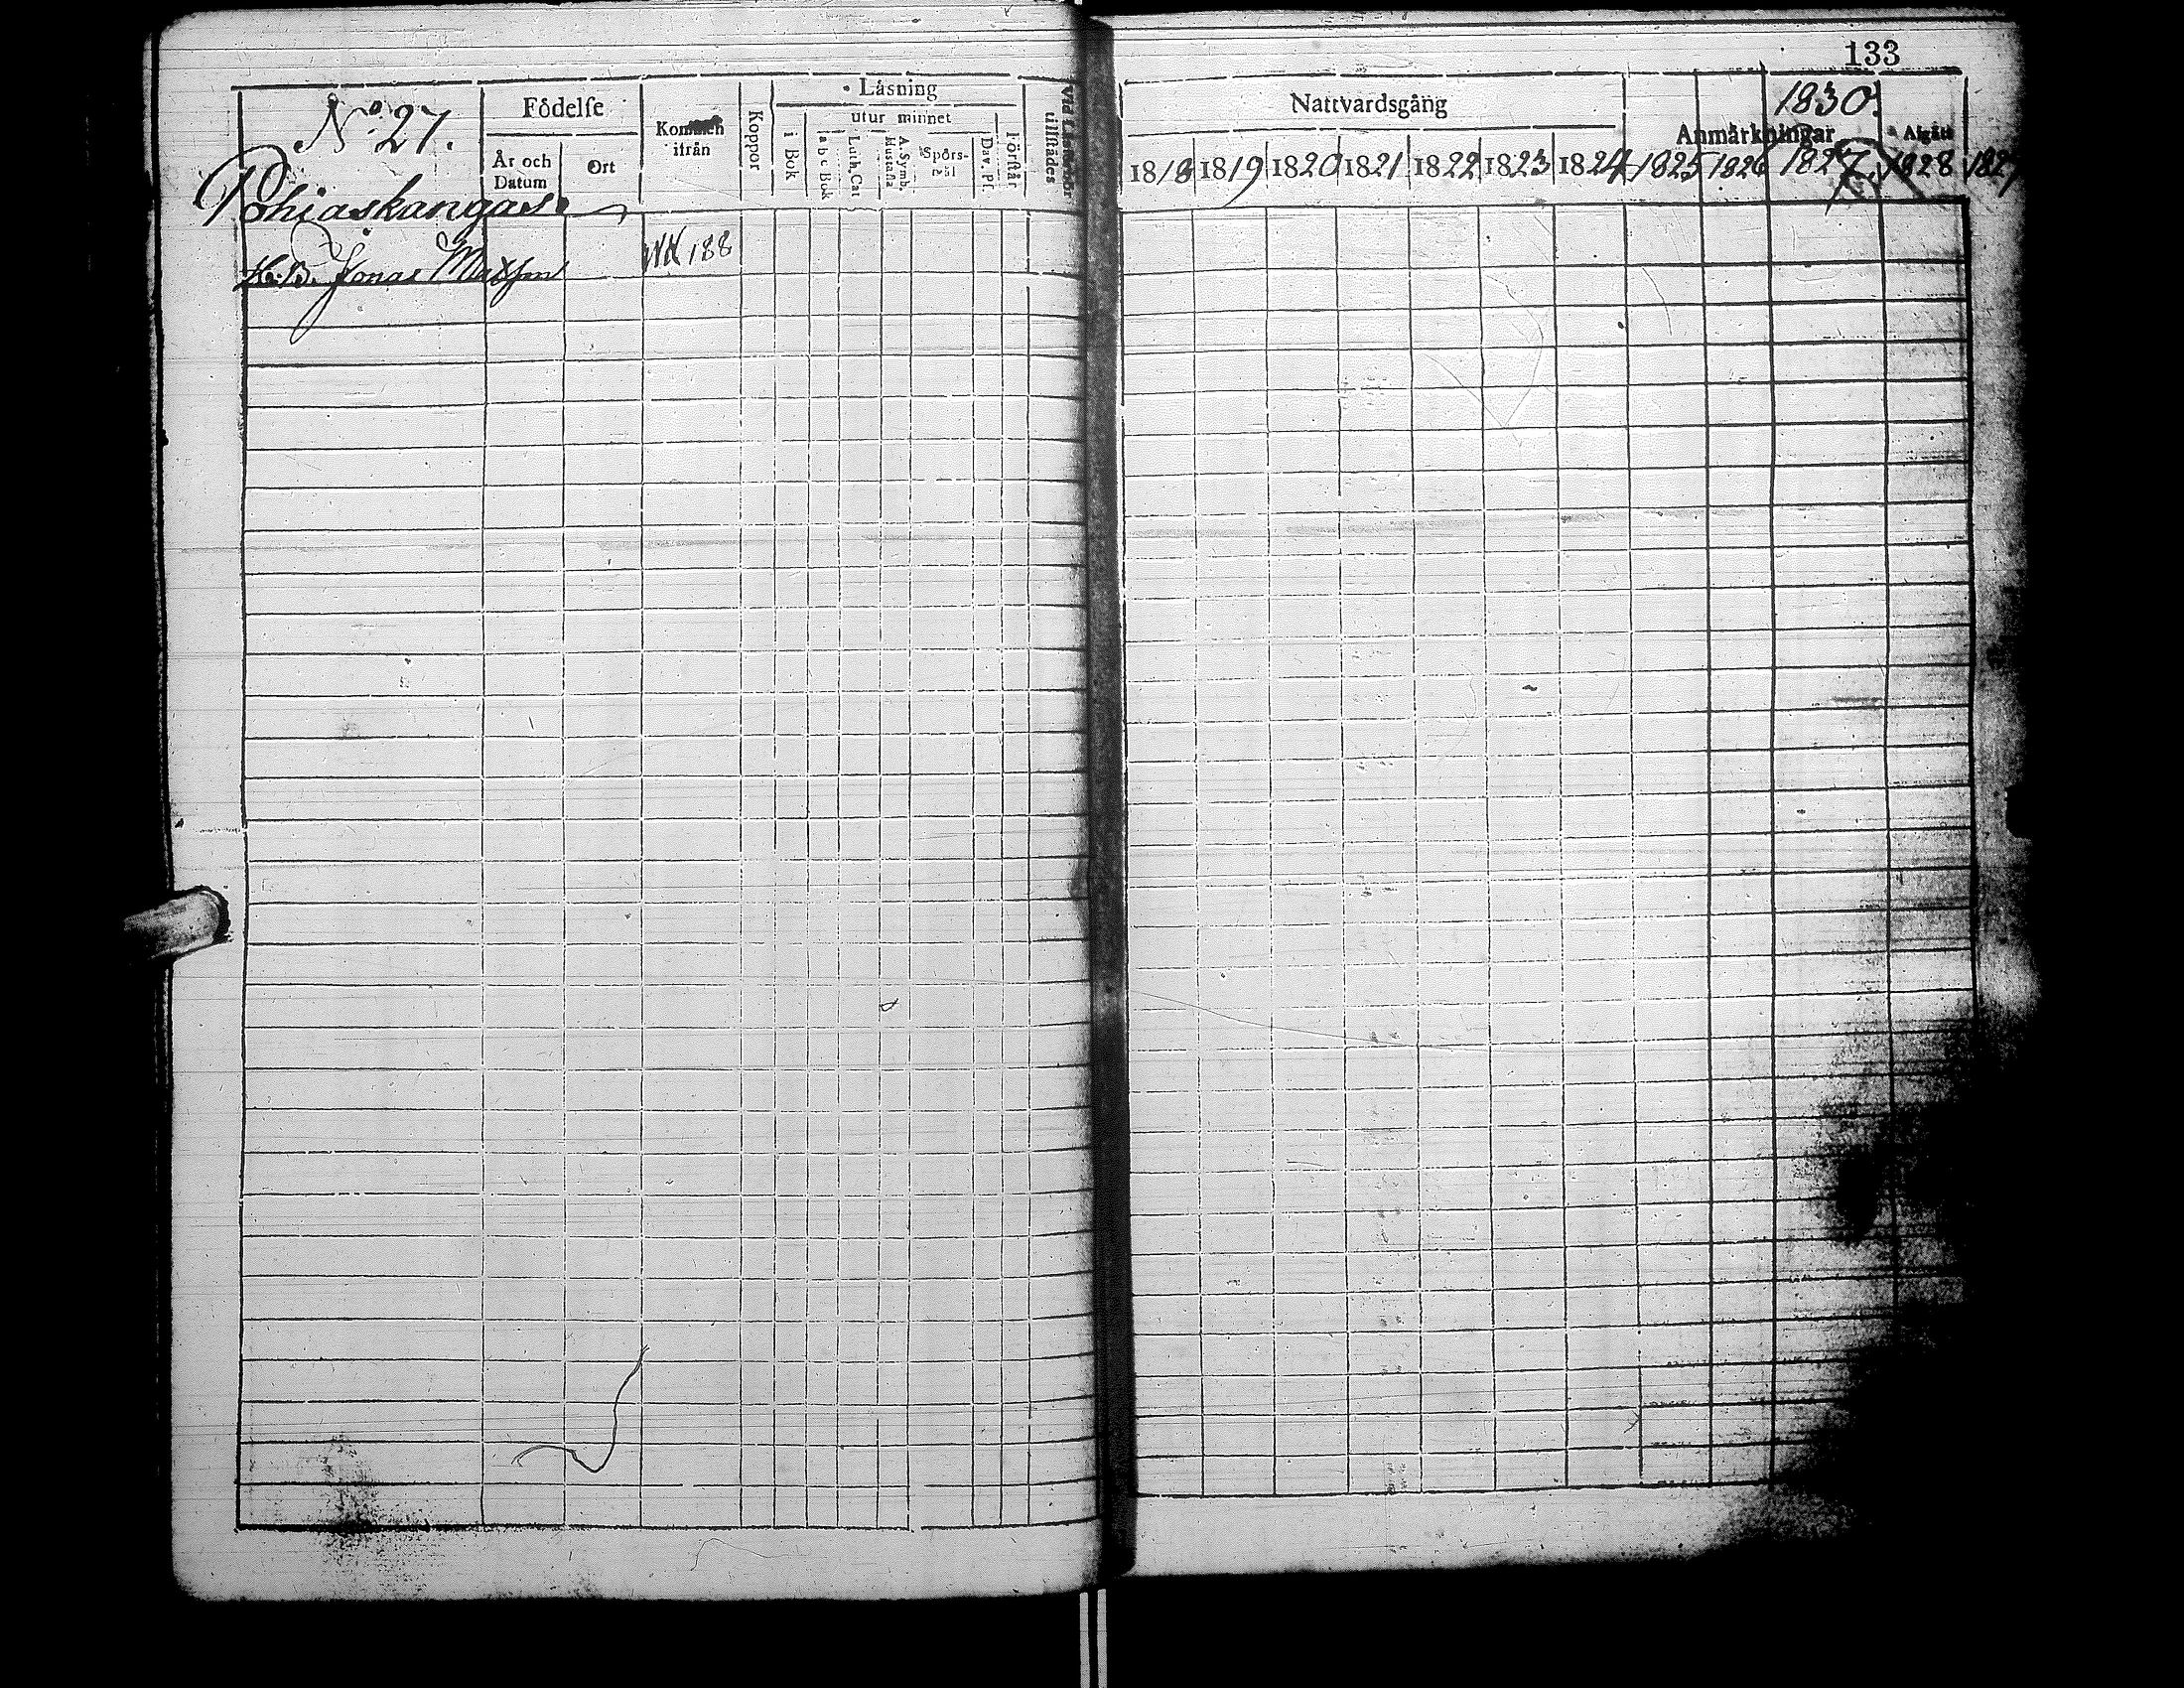 133
No 27.
Födelse
År och Datum
Ort
Kommen ifrån
Koppor
Läsning
utur minnet
i Bok
a b c Bok
Luth. Cat
A. Symb.
Spörs-mål
Dav. Ps.
Förstår
tillstädes
Nattvardsgång
1818 1819 1820 1821 1822 1823 1824 1825 1826 1827. 1828
Anmärkningar
1830.
Afgått
Pohiaskangas
H. B. Jonas Matsson
188